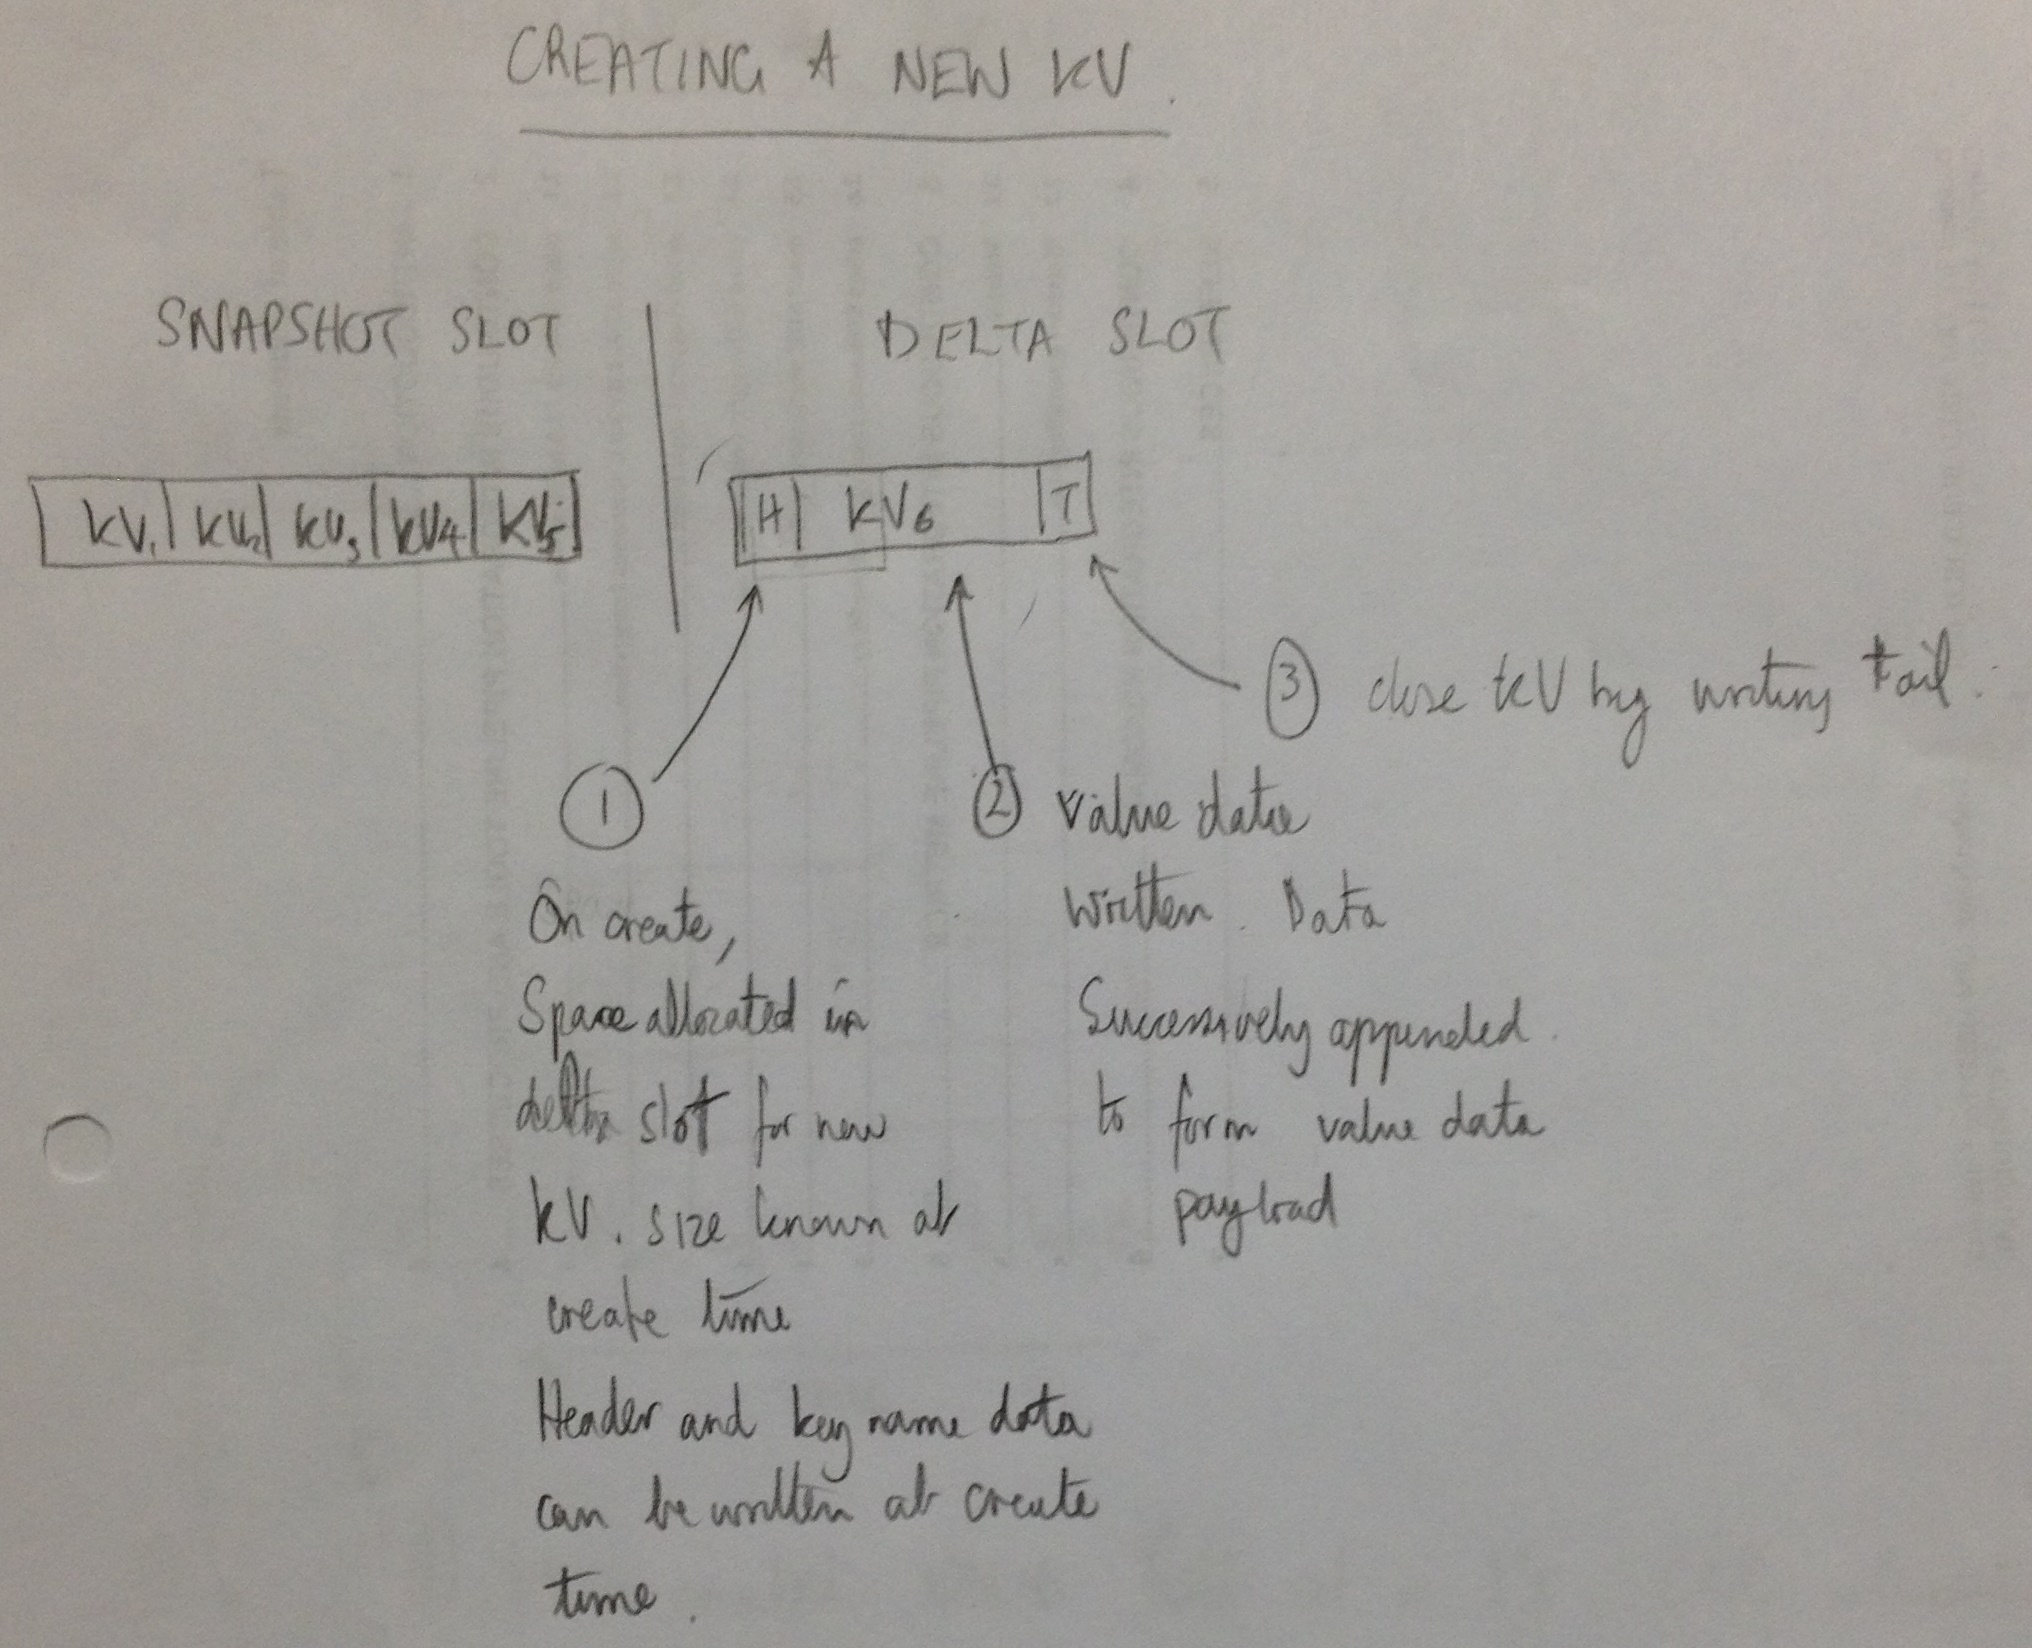 CREATING A NEW KV.
SNAPSHOT SLOT
DELTA SLOT
KV1 KV2 KV3 KV4 KV5
H KV6 T
1
On create,
Space allocated in
delta slot for new
KV. Size known at
create time
Header and key name data
can be written at create
time.
2 value data
written. Data
Successively appended.
to form value data
payload
3 close KV by writing tail.